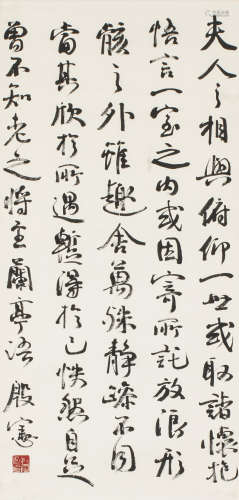 夫人之相與俯仰一世或取諸懷抱
悟言一室之內或因寄所託放浪形
骸之外雖趣舍萬殊靜躁不同
當其欣於所遇蹔得於己怏然自足
曾不知老之將至蘭亭語 殷憲